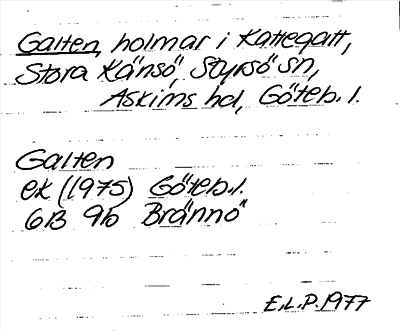 Galten, holmar i Kattegatt,
Stora Känsö, Styrsö sn,
Askims hd, Göteb. l.
Galten
ek (1975) Göteb.l.
6B 9b Brännö
E.L.P. 1977